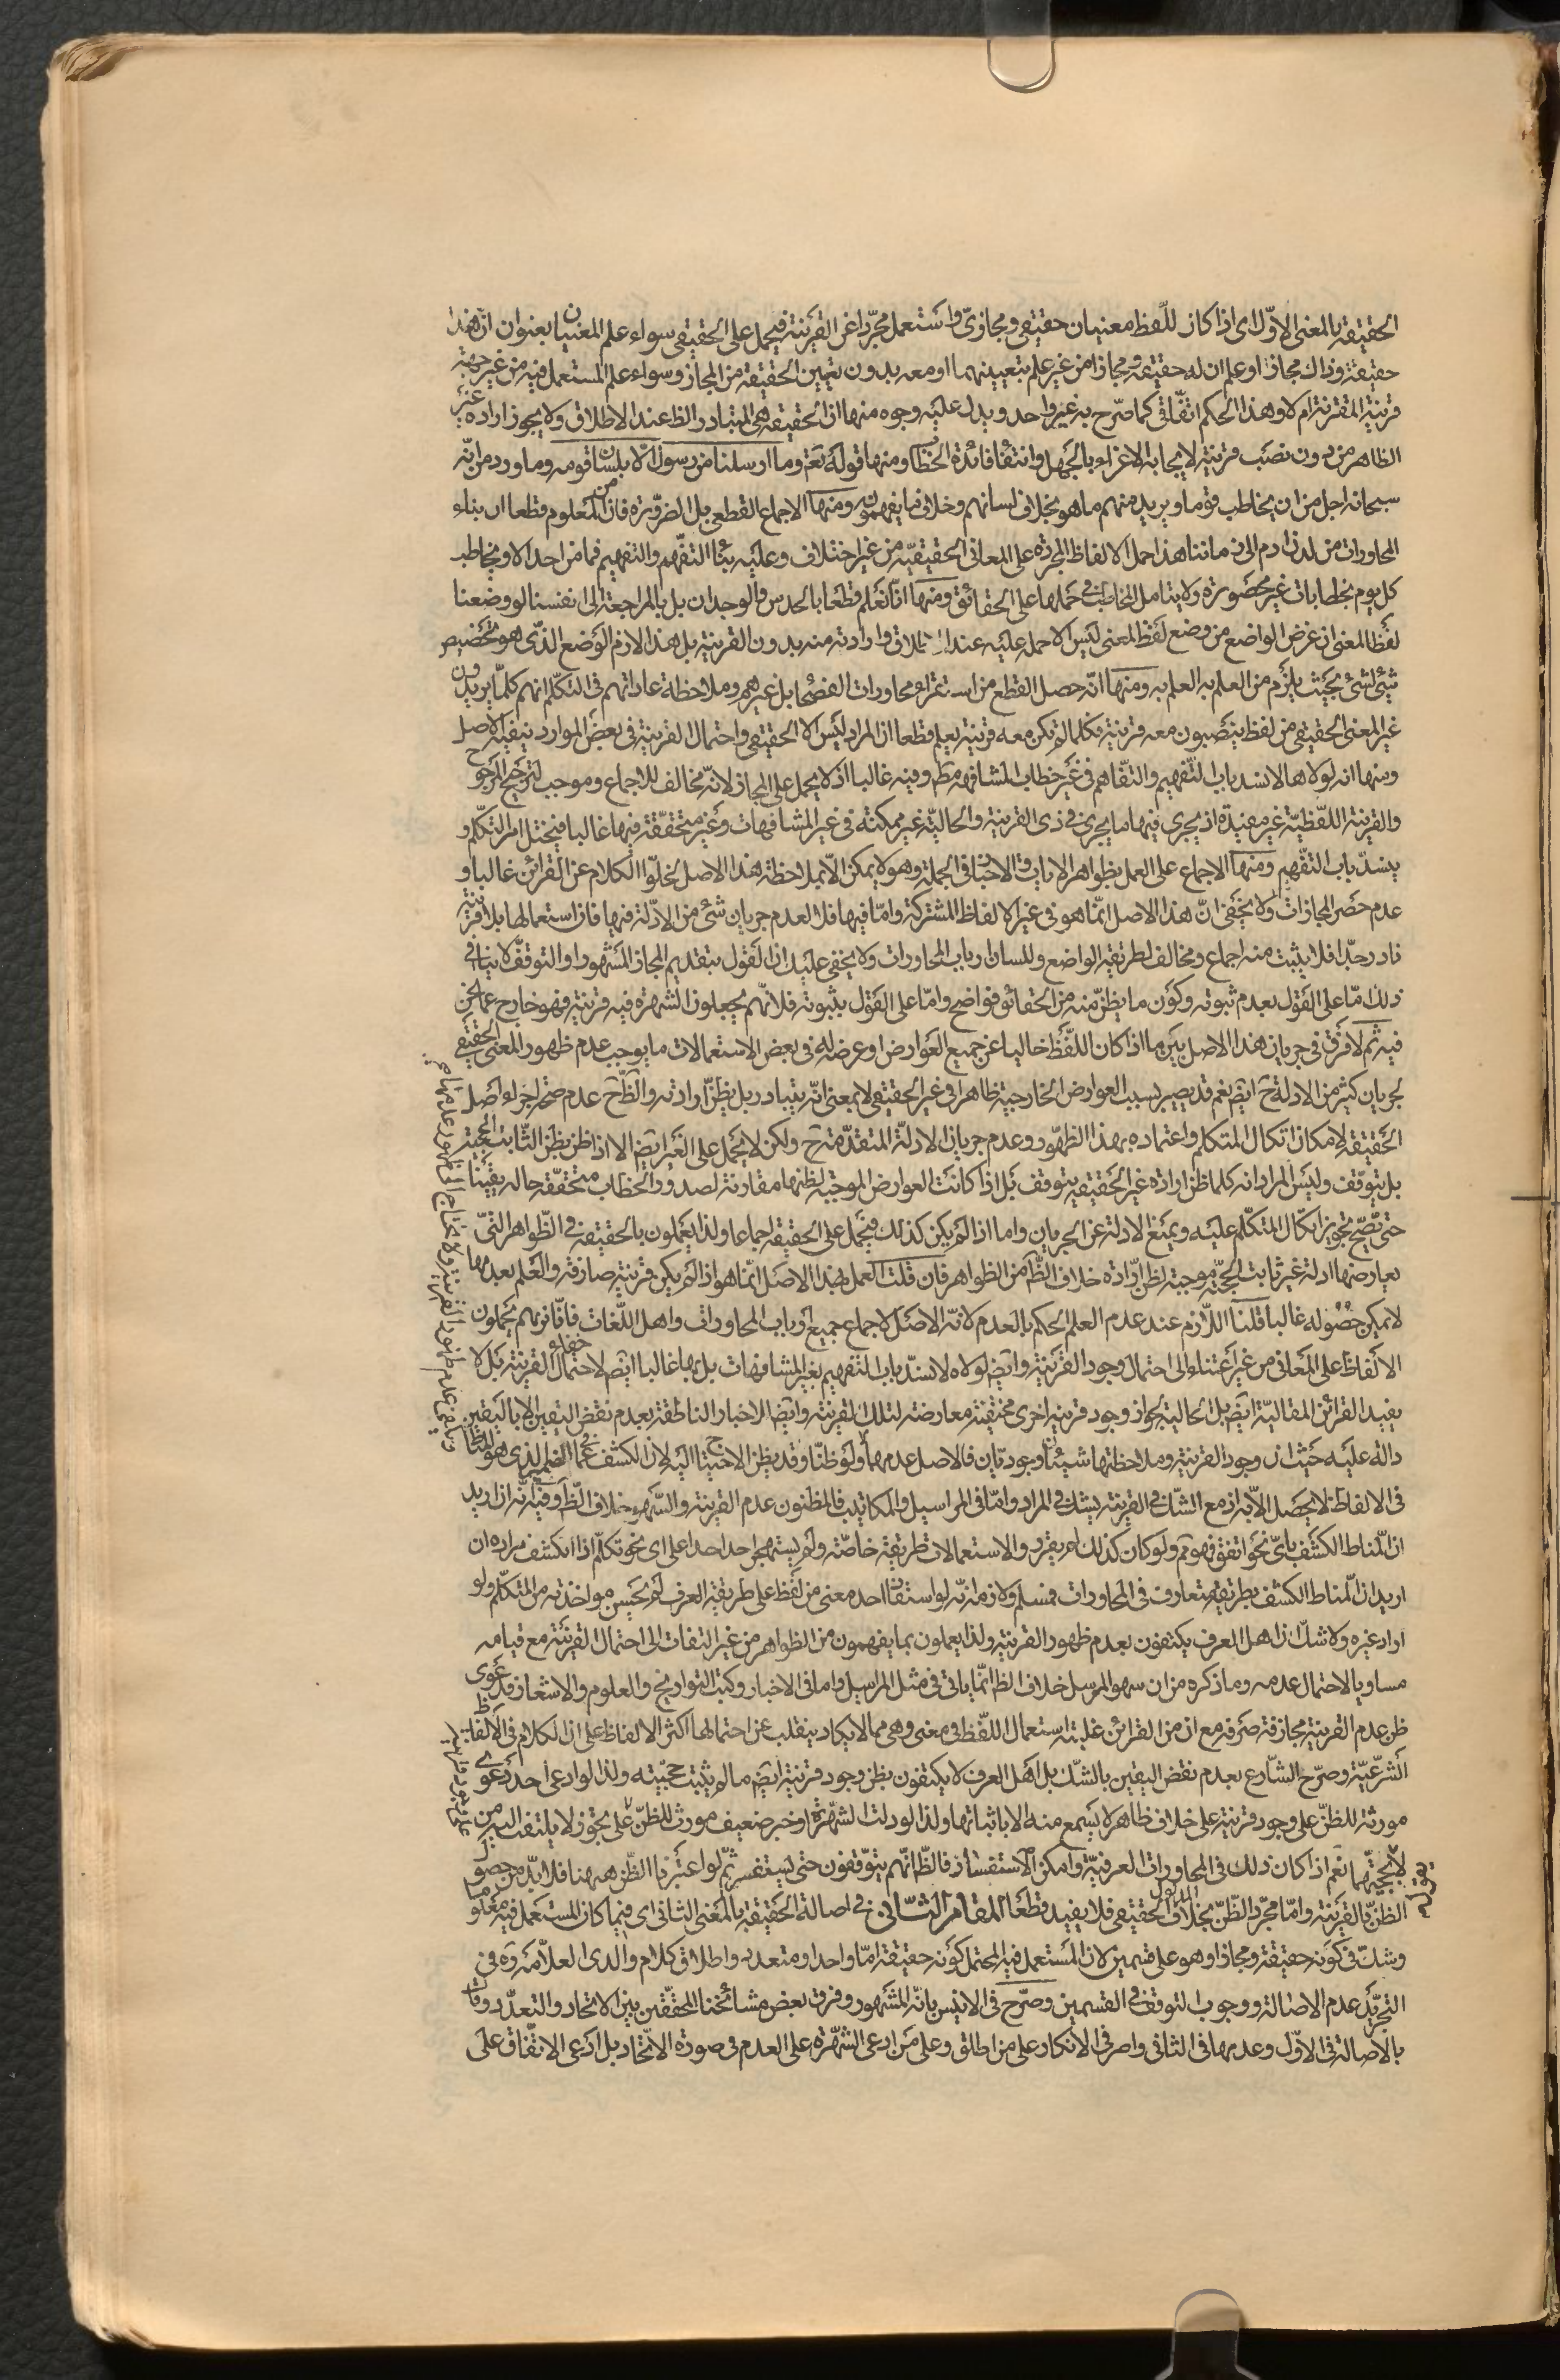 الحقيقة بالمعنى الاوّل اى اذا كان للّفظ معنيان حقيقى ومجازىّ واستعمل مجرّدا عن القرينة فيحمل على الحقيقى سواء علم المعنيان بعنوان انّ هذا
حقيقة وذاك مجاز او علم ان له حقيقة ومجازا من غير علم بتعيينهما او معه بدون تعيين الحقيقة من المجاز وسواء علم المستعمل فيه من غير جهة
قرينة المقترنة ام لا وهذا الحكم اتّفاقى كما صرّح به غير واحد ويدل عليه وجوه منها ان الحقيقة هى المتبادر الظ عند الاطلاق ولا يجوز اراده غير
الظاهر من دون نصب قرينة لايجابه الاغراء بالجهل وانتفاء فائدة الخطاب ومنها قوله تعٰ وما ارسلنا من رسول الّا بلسان قومه وما ورد من انّه
سبحانه اجل من ان يخاطب قوما ويريد منهم ما هو بخلاف لسانهم وخلاف ما يفهمون ومنها الاجماع القطعى بل الضرورة فان من المعلوم قطعا ان بناء
المحاورات من لدن ادم الى زماننا هذا حمل الالفاظ المجردة على المعانى الحقيقيّه من غير اختلاف وعليه بناء التفهّم والتفهيم فما من احد الا ويخاطب
كل يوم بخطابات غير محصورة ولا يتامل المخاطب فى حملها على الحقائق ومنها انّا نعلم قطعا بالحدس والوجدان بل بالمراجعة الى انفسنا لو وضعنا
لفظا لمعنى ان غرض الواضع من وضع لفظ المعنى ليس الا حمله عليه عند الاطلاق وارادته منه بدون القرينة بل هذا لازم الوضع الذّى هو تخصيص
شئ لشئ بحيث يلزم من العلم به العلم به ومنها انّه حصل القطع من استقراء محاورات الفصحاء بل غيرهم وملاحظة عاداتهم فى التكلّم انهم كلّما يريدون
غير المعنى الحقيقى من لفظ ينصبون معه قرينة فكلما لم تكن معه قرينة يعلم قطعا ان المراد ليس الا الحقيقى واحتمال القرينة فى بعض الموارد ينفيه الاصل
ومنها انه لولاها لانسد باب التّفهيم والتّفاهم فى غير خطاب المشافهة مط وفيه غالبا اذ لا يحمل على المجاز لانّه مخالف للاجماع وموجب لترجيح المرجوح
والقرينة اللفّظيّة غير مفيدة اذ يجرى فيها ما يجرى فى ذى القرينة والحاليّة غير ممكنة فى غير المشافهات وغير متحقّقة فيها غالبا فيختل امر التكلّم و
ينسدّ باب التفّهم ومنها الاجماع على العمل بظواهر الايات والاخبار فى الجملة وهو لا يمكن الّا بملاحظة هذا الاصل لخلوّ الكلام عن القرائن غالبا و
عدم حصر المجازات ولا يخفى انّ هذا الاصل انّما هو فى غير الالفاظ المشتركة وامّا فيها فلا لعدم جريان شئ من الادّلة فيها فان استعمالها بلا قرينة
نادر جدّا فلا يثبت منه اجماع ومخالف لطريقة الواضع وللسان ارباب المحاورات ولا يخفى عليك ان القول بتقديم المجاز المشهور او التوقف لا ينافى
ذلك امّا على القول بعدم ثبوته وكون ما يظنّ منه من الحقائق فواضح وامّا على القول بثبوته فلانّهم يجعلون الشهرة فيه قرينة فهو خارج عما نحن
فيه ثم لا فرق فى جريان هذا الاصل بين ما اذا كان اللّفظ خاليا عن جميع العوارض او عرض له فى بعض الاستعمالات ما يوجب عدم ظهور المعنى الحقيقى
لجريان كثير من الادلة ح ايضٓ نعم قد يصير بسبب العوارض الخارجية ظاهرا فى غير الحقيقى لا بمعنى انّه يتبادر بل يظنّ ارادته والظّ ح عدم صحة اجراء اصل
الحقيقة لامكان اتكال المتكلم واعتماده بهذا الظهور وعدم جريان الادلّة المتقدّمة ح ولكن لا يحمل على الغير ايضٓ الا اذا ظن بظن الثّابت الحجية
بل يتوّقف وليس المراد انه كلما ظن ارادة غير الحقيقة يتوقف بل اذا كانت العوارض الموجبة لظنها مقارنة لصدور الخطاب متحقّقة حاله يقينا
حتى يصّح تجويز اتكّال المتكلّم عليه ويمنع الادلة عن الجريان واما اذا لم يكن كذلك فيحمل على الحقيقة اجماعا ولذا يعملون بالحقيقة فى الظّواهر التّى
يعارضها ادلة غير ثابت الحجيّة موجبة لظن ارادة خلاف الظّ من الظواهر فان قلت العمل بهذا الاصل انّما هو اذا لم يكن قرينة صارفة والعلم بعدمها
لا يمكن حصوله غالبا قلنا اللّازم عند عدم العلم الحكم بالعدم لانّه الاصل لاجماع جميع ارباب المحاورات واهل اللّغات فانّا نراهم يحملون
الالفاظ على المعانى من غير اعتناء الى احتمال وجود القرينة وايضٓ لولاه لانسدّ باب التفهيم بغير المشافهات بل بها غالبا ايضٓ لاحتمال خفاء القرينة بل لا
يفيد القرائن المقاليّة ايضٓ بل الحالية لجواز وجود قرينة اخرى مختفية معارضة لتلك القرينة وايضٓ الاخبار الناطقة بعدم نقض اليقين الا باليقين
دالة عليه حيث ان وجود القرينة وملاحظتها شيئان وجوديّان فالاصل عدمهما ولو ظنّا وقد يظن الاحتياج اليه لان الكشف عما فى الضمير الذى هو المناط
فى الالفاظ لا يحصل الّا به اذ مع الشّك فى القرينة يشك فى المراد وامّا فى المراسيل والمكاتيب فالمظنون عدم القرينة والسّهو خلاف الظّ وفيه انّه ان اريد
ان المناط الكشف باىّ نحو اتفق فهو مم ولو كان كذلك لم يقرر والاستعمالات طريقة خاصّة ولم يستهجن احد احدا على اى نحو تكلّم اذا انكشف مراده ان
اريد ان المناط الكشف بطريقة متعارف فى المحاورات فمسلم ولازمه انّه لو استفاد احد معنى من لفظ على طريقة العرف لم يحسن مواخذته من المتكلّم ولو
اراد غيره ولا شك ان اهل العرف يكتفون بعدم ظهور القرينة ولذا يعملون بما يفهمون من الظواهر من غير التفات الى احتمال القرينة مع قيامه
مساويا لاحتمال عدمه وما ذكره من ان سهو المرسل خلاف الظ انّما ياتى فى مثل المراسيل واما فى الاخبار وكتب التواريخ والعلوم والاشعار فدعوى
ظن عدم القرينة مجازفة صرفة مع ان من القرائن غلبة استعمال اللّفظ فى معنى وهى مما لا يكاد ينقلب عن احتمالها اكثر الالفاظ على ان الكلام فى الالفاظ
الشرعّيّة وصرّح الشّارع بعدم نقض اليقين بالشّك بل اهل العرف لا يكتفون بظن وجود قرينة ايضٓ ما لم يثبت حجيّته ولذا لو ادعى احد دعوى
مورثة للظنّ على وجود قرينة على خلاف ظاهر لا يسمع منه الا باثباتها ولذا لو دلت الشهرة او خبر ضعيف مورث للظنّ على تجوز لا يلتفت اليه من
لا يحجيّتهما نعم اذا كان ذلك فى المحاورات العرفيّة وامكن الاستفسار فالظ انّهم يتوّقفون حتى يستفسر ثمّ لو اعتبرنا الظّن ههنا فلا بدّ من حصول
الظنّ بالقرينة وامّا مجرّد الظّنّ بخلاف المدلول الحقيقى فلا يفيد قطعا المقام الثّانى فى اصالة الحقيقة بالمعنى الثانى اى فيما كان المستعمل فيه معلوما
وشكّ فى كونه حقيقة ومجازا وهو على قسمين لان المستعمل فيه المحتمل كونه حقيقة امّا واحد او متعدد واطلاق كلام والدى العلّامة ره فى
التجريد عدم الاصالة ووجوب التوقف فى القسمين وصرّح فى الانيس بانّه المشهور وفرق بعض مشائخنا المحقّقين بين الاتحاد والتعدّد وقال
بالاصالة فى الاوّل وعدمها فى الثانى واصر فى الانكار على من اطلق وعلى من ادعى الشهرة على العدم فى صورة الاتّحاد بل ادّعى الاتّفاق على